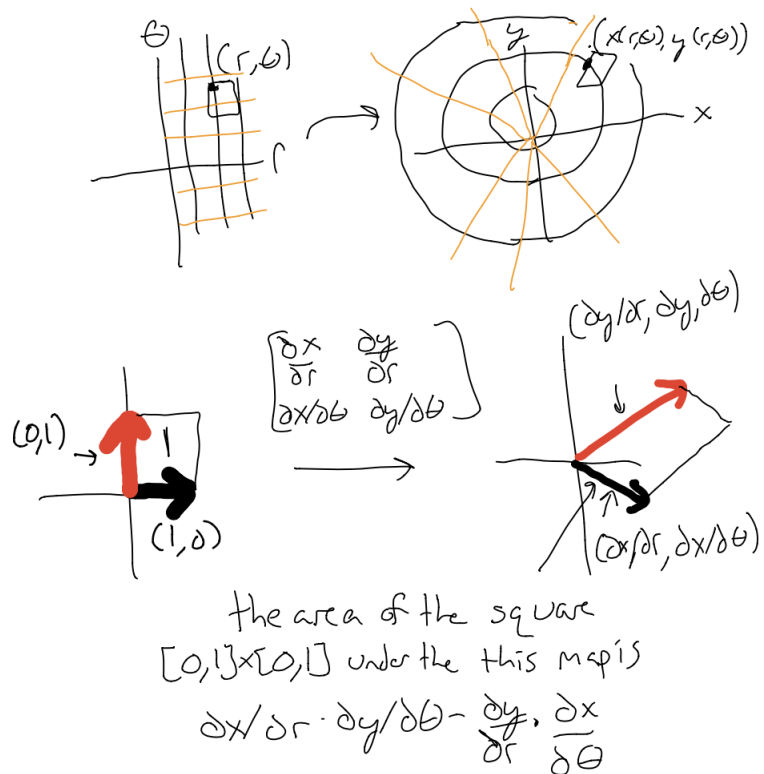 θ
(r,θ)
r
y
(x(r,θ), y(r,θ))
x
∂x/∂r ∂y/∂r
∂x/∂θ ∂y/∂θ
(∂y/∂r, ∂y,∂θ)
(0,1)
1
(1,0)
(∂x/∂r, ∂x/∂θ)
the area of the square
[0,1]×[0,1] under the this map is
∂x/∂r · ∂y/∂θ - ∂y/∂r · ∂x/∂θ